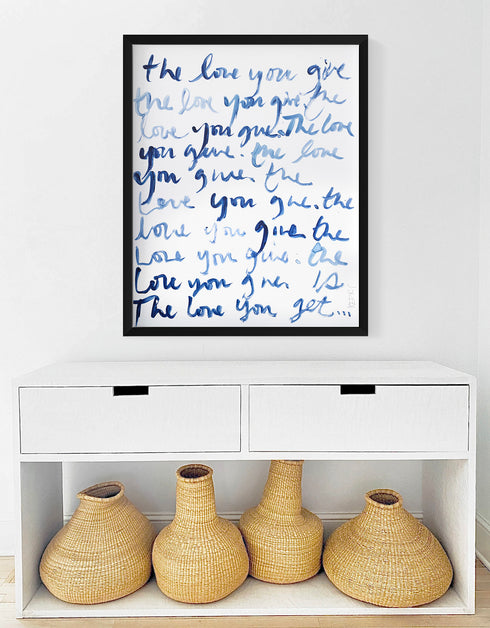 the love you give
the love you give. the
love you give. The love
you give. the love
you give. the
Love you give. the
love you give the
Love you give. the
Love you give. IS
The love you get...